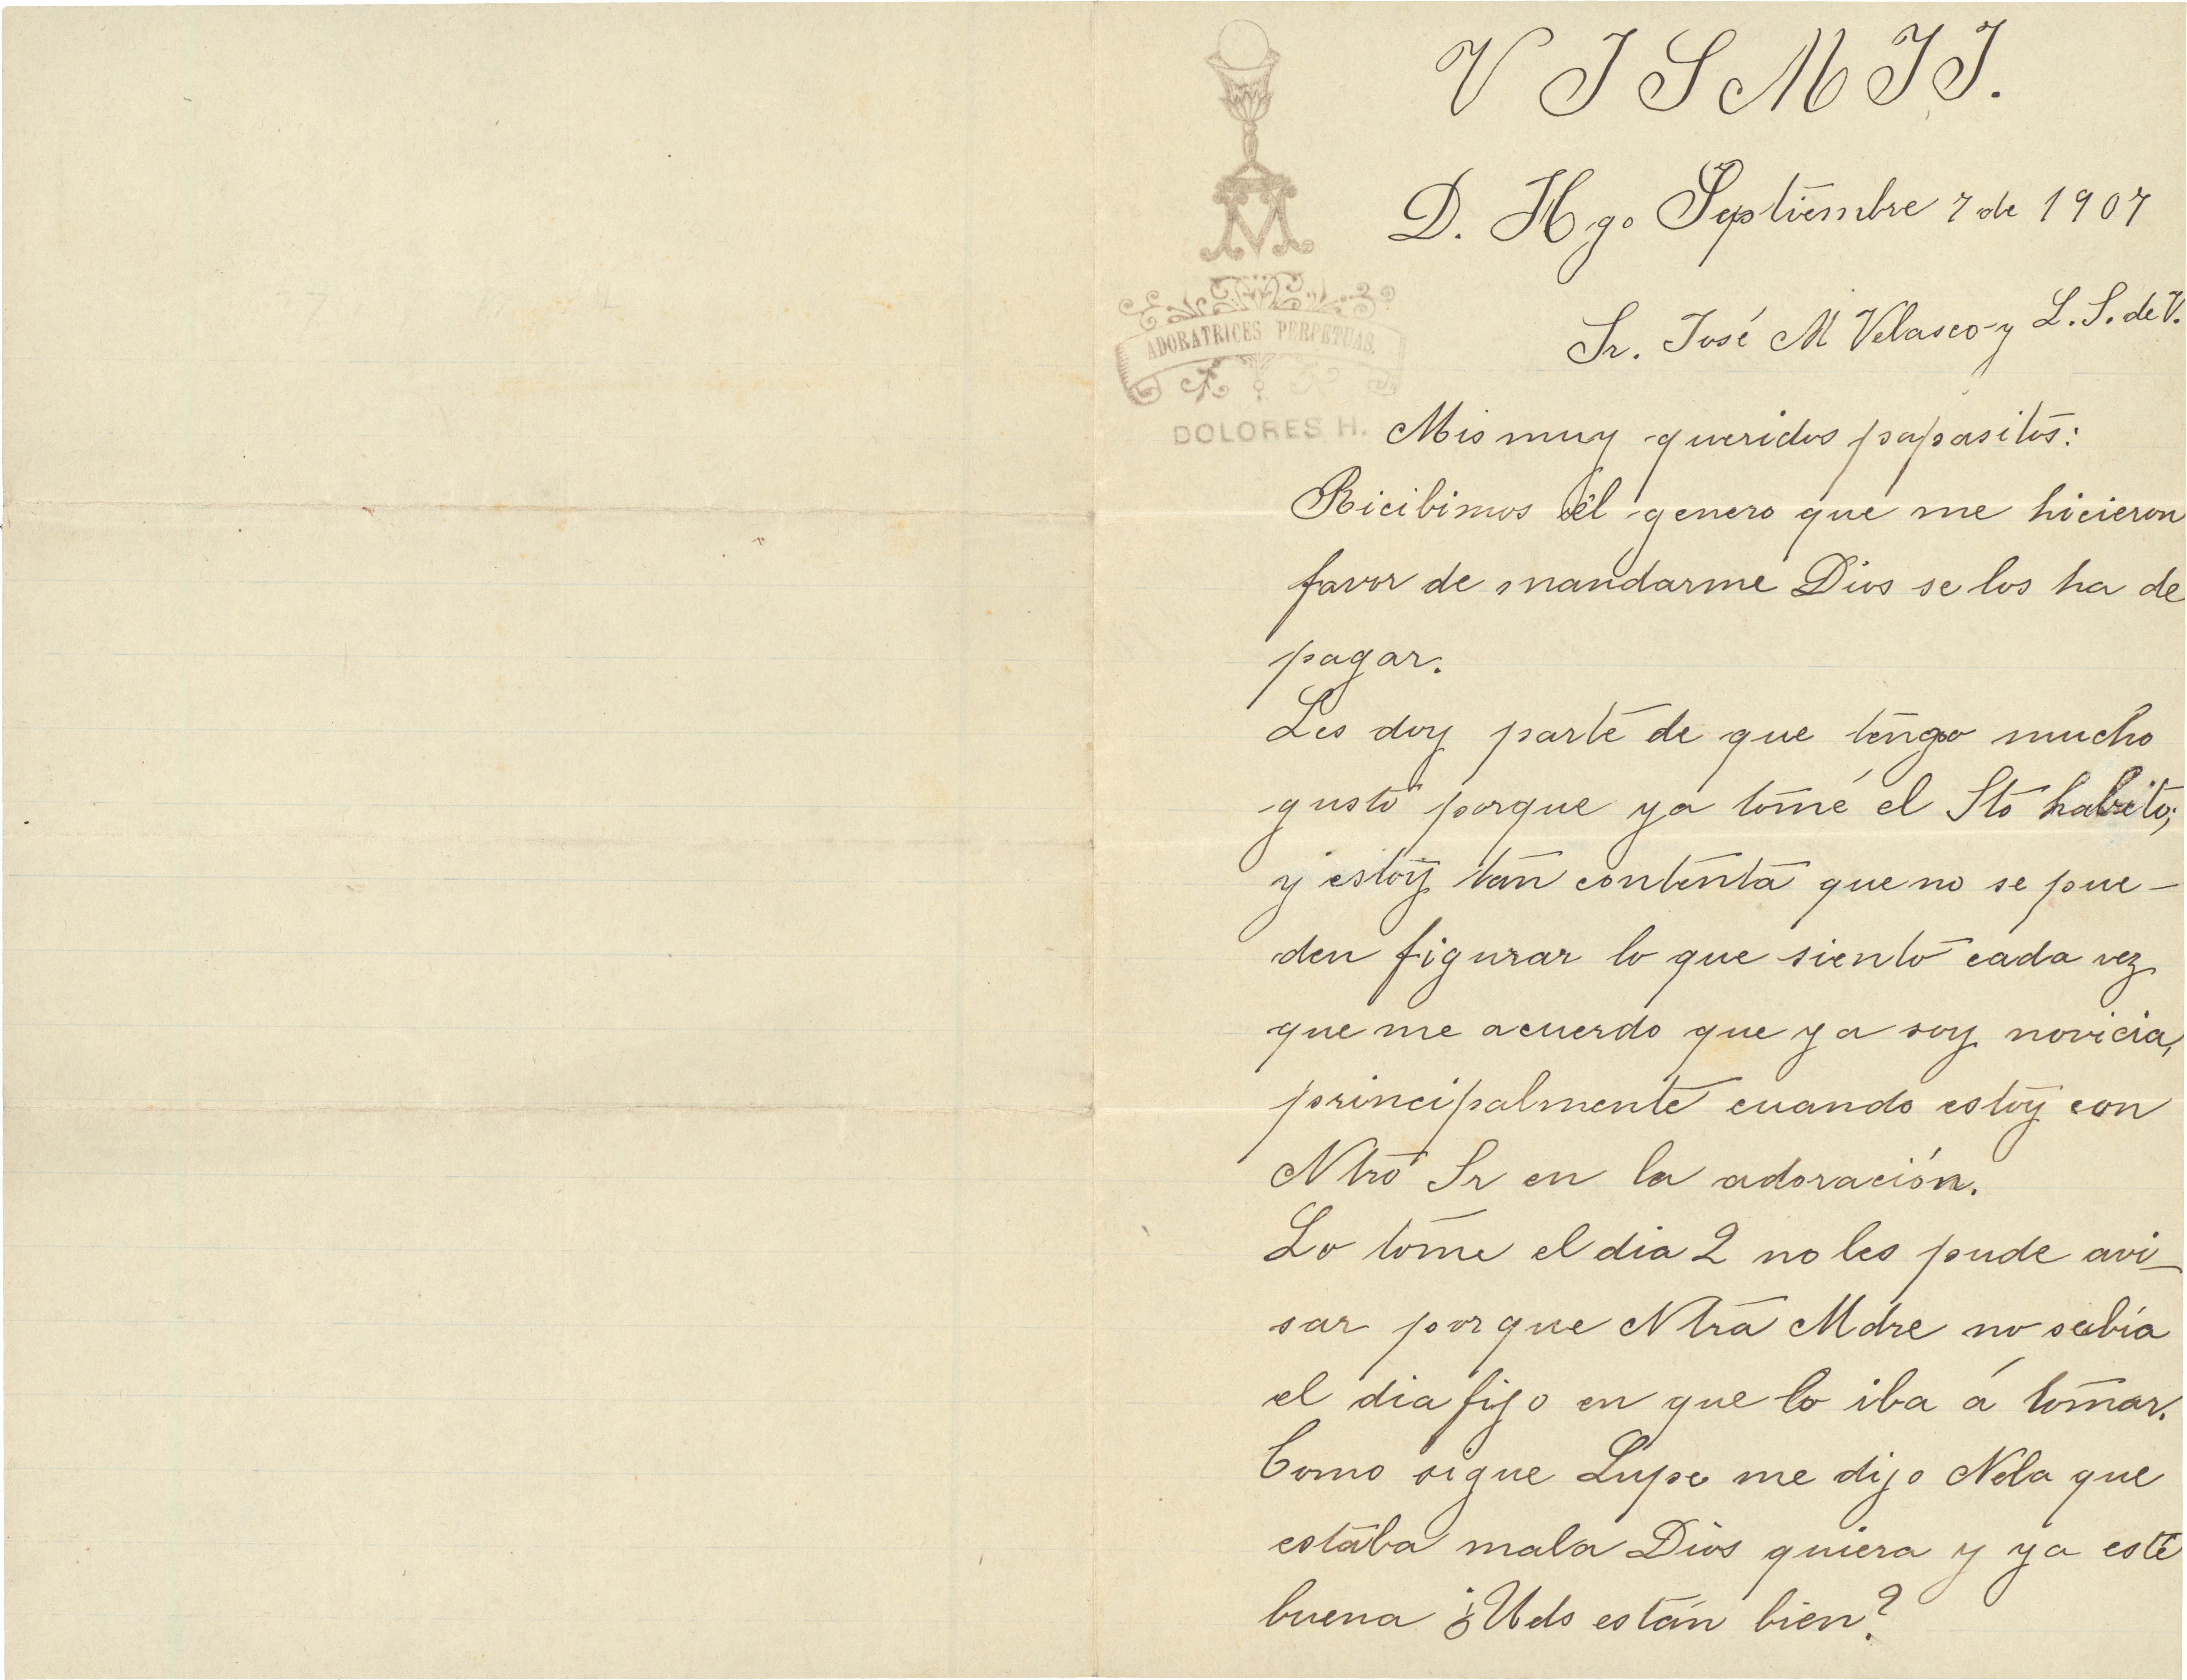 V J S M J J.
D. Hgo Septiembre 7 de 1907
Sr. José M Velasco y L. S. de V.
ADORATRICES PERPETUAS.
DOLORES H.
Mis muy queridos papasitos:
Ricibimos el genero que me hicieron
favor de mandarme Dios se los ha de
pagar.
Les doy parte de que tengo mucho
gusto porque ya tomé el Sto habito;
y estoy tan contenta que no se pue-
den figurar lo que siento cada vez
que me acuerdo que ya soy novicia,
principalmente cuando estoy con
Ntro Sr en la adoración.
Lo tome el dia 2 no les pude avi-
sar porque Ntra Mdre no sabía
el dia fijo en que lo iba á tomar.
Como sigue Lupe me dijo Nela que
estaba mala Dios quiera y ya esté
buena ¿Uds están bien?